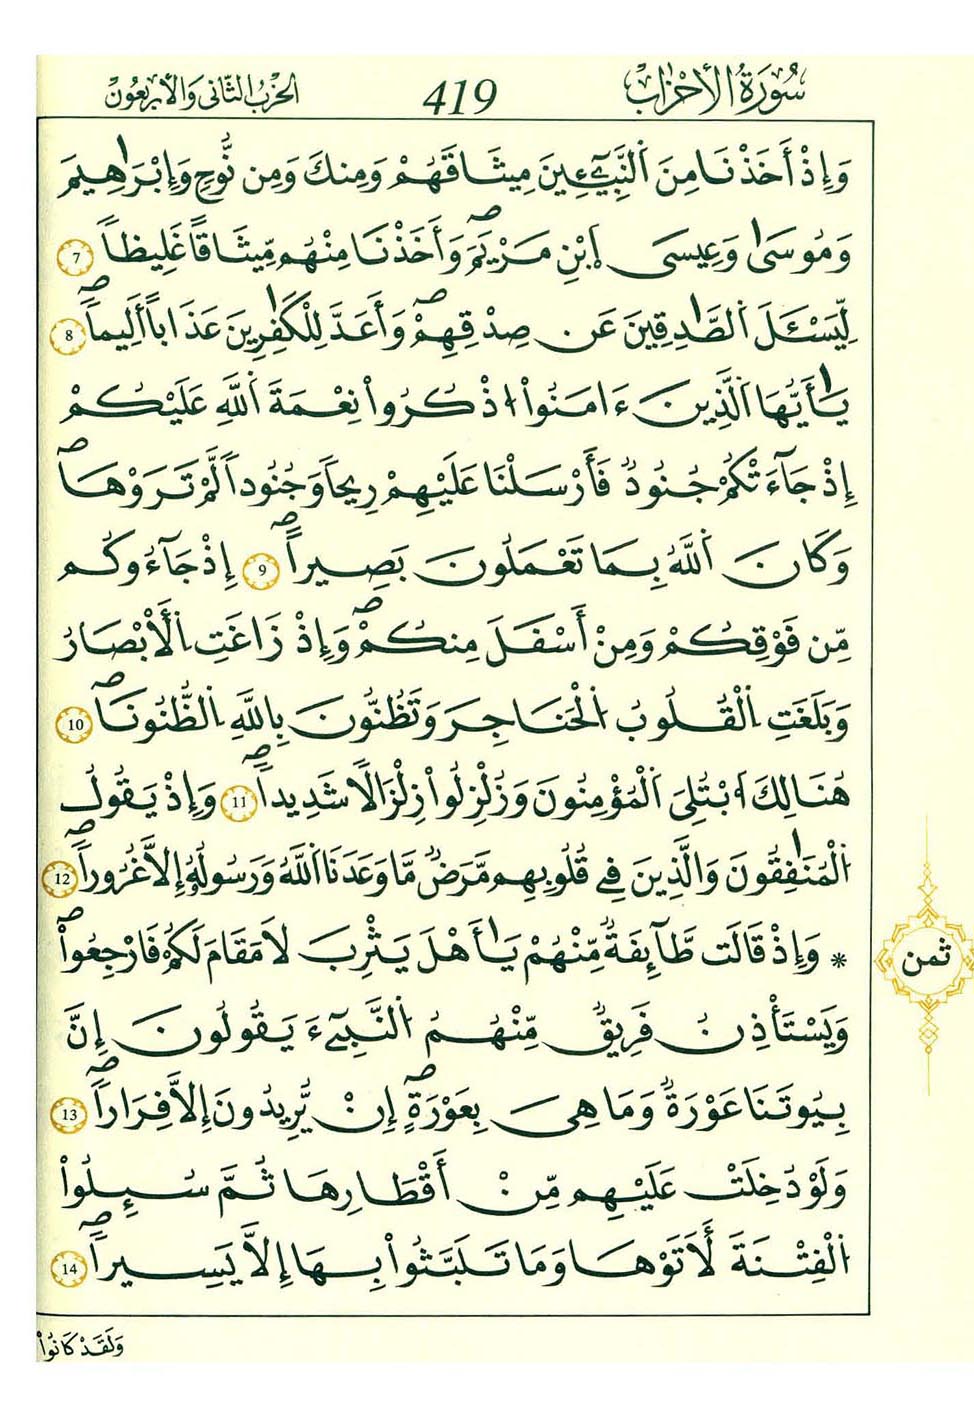 سُورَةُ الْأَحْزَابِ 419 الحِزْبُ الثَّانِي وَالْأَرْبَعُونْ
وَإِذْ أَخَذْنَا مِنَ اَ۬لنَّبِيٓـِٕينَ مِيثَٰقَهُمْ وَمِنكَ وَمِن نُّوحٍ وَإِبْرَٰهِيمَ
وَمُوسَىٰ وَعِيسَى اَ۪بْنِ مَرْيَمَۖ وَأَخَذْنَا مِنْهُم مِّيثَٰقاً غَلِيظاً 7
لِّيَسْـَٔلَ اَ۬لصَّٰدِقِينَ عَن صِدْقِهِمْۖ وَأَعَدَّ لِلْكَٰفِرِينَ عَذَاباً أَلِيماًۖ 8
يَٰٓأَيُّهَا اَ۬لذِينَ ءَامَنُواْ اُ۟ذْكُرُواْ نِعْمَةَ اَ۬للَّهِ عَلَيْكُمْ
إِذْ جَآءَتْكُمْ جُنُودٞ فَأَرْسَلْنَا عَلَيْهِمْ رِيحاً وَجُنُوداً لَّمْ تَرَوْهَاۖ
وَكَانَ اَ۬للَّهُ بِمَا تَعْمَلُونَ بَصِيراًۖ 9 إِذْ جَآءُوكُم
مِّن فَوْقِكُمْ وَمِنْ أَسْفَلَ مِنكُمْۖ وَإِذْ زَاغَتِ اِ۬لْأَبْصَٰرُ
وَبَلَغَتِ اِ۬لْقُلُوبُ اُ۬لْحَنَاجِرَ وَتَظُنُّونَ بِاللَّهِ اِ۬لظُّنُونَاۖ 10
هُنَالِكَ اَ۟بْتُلِيَ اَ۬لْمُؤْمِنُونَ وَزُلْزِلُواْ زِلْزَالاً شَدِيداًۖ 11 وَإِذْ يَقُولُ
اُ۬لْمُنَٰفِقُونَ وَالذِينَ فِے قُلُوبِهِم مَّرَضٞ مَّا وَعَدَنَا اَ۬للَّهُ وَرَسُولُهُۥٓ إِلَّا غُرُوراًۖ 12
* وَإِذْ قَالَت طَّآئِفَةٞ مِّنْهُمْ يَٰٓأَهْلَ يَثْرِبَ لَا مَقَامَ لَكُمْ فَارْجِعُواْۖ
ثمن
وَيَسْتَأْذِنُ فَرِيقٞ مِّنْهُمُ اُ۬لنَّبِيٓءَ يَقُولُونَ إِنَّ
بِيُوتَنَا عَوْرَةٞ وَمَا هِيَ بِعَوْرَةٍۖ إِنْ يُّرِيدُونَ إِلَّا فِرَاراًۖ 13
وَلَوْ دُخِلَتْ عَلَيْهِم مِّنْ أَقْطَارِهَا ثُمَّ سُئِلُواْ
اُ۬لْفِتْنَةَ لَأَتَوْهَا وَمَا تَلَبَّثُواْ بِهَا إِلَّا يَسِيراًۖ 14
وَلَقَدْ كَانُواْ